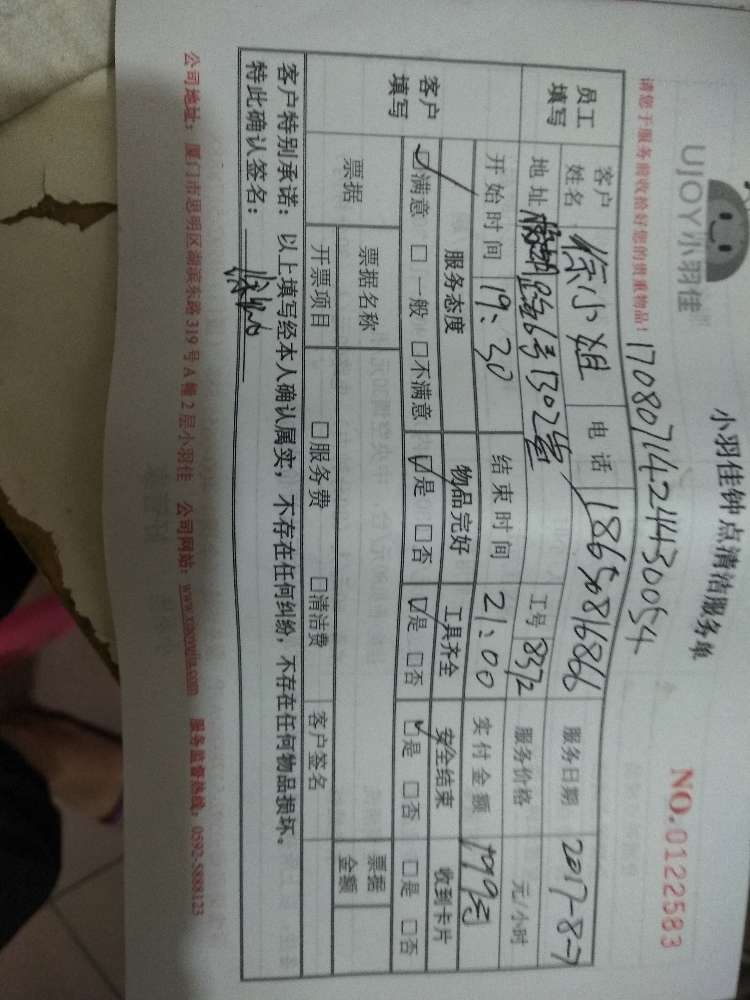 UJOY小羽佳
小羽佳钟点清洁服务单
NO.0122583
请您于服务前收拾好您的贵重物品!
1708071424430054
员工填写
客户姓名 徐小姐 电话 18650816866 服务日期 2017-8-7
地址 6号1302室 工号 8372 服务价格 元/小时
开始时间 19:30 结束时间 21:00 实付金额
客户填写
服务态度 物品完好 工具齐全 安全结束 收到卡片
☑满意 □一般 □不满意 ☑是 □否 ☑是 □否 ☑是 □否 □是 □否
票据 票据名称 票据金额
开票项目 □服务费 □清洁费 客户签名
客户特别承诺:以上填写经本人确认属实,不存在任何纠纷,不存在任何物品损坏。
特此确认签名:
公司地址:厦门市思明区湖滨东路319号A幢2层小羽佳 公司网站:www.xiaoyujia.com 服务监督热线:0592-5888123